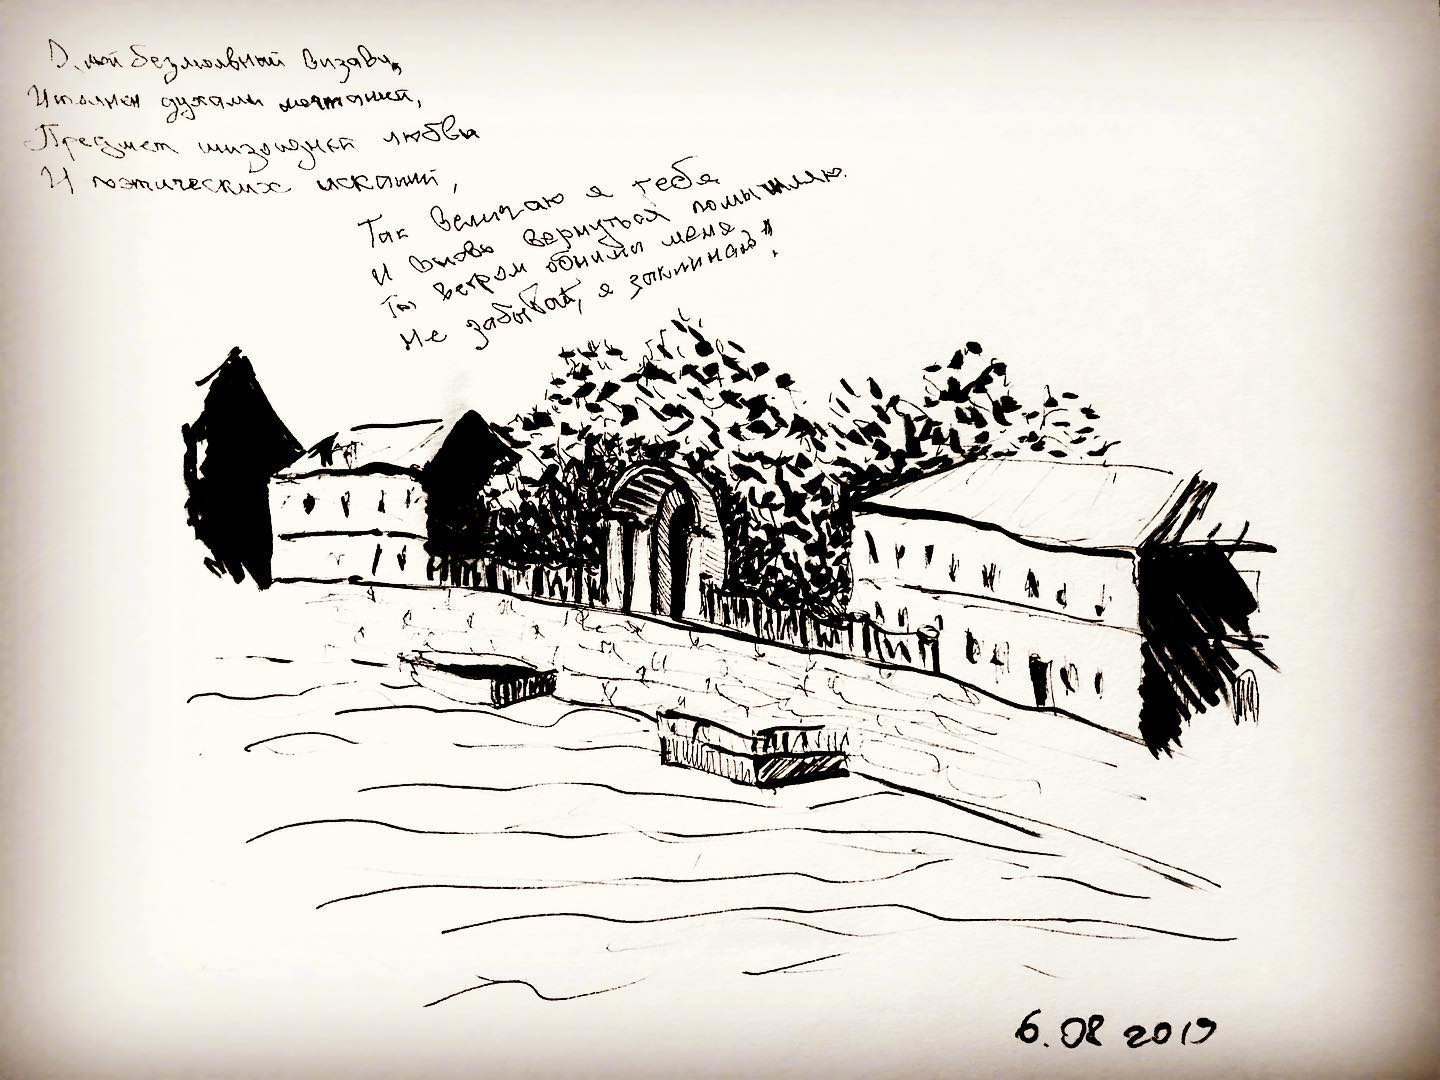 О, мой безмолвный визави,
Исполнен духами мечтаний,
Предмет шизоидной любви
И поэтических исканий,
Так величаю я тебя
И вновь вернуться помышляю.
Ты ветром обними меня,
Не забывай, я заклинаю!
6.08 2019